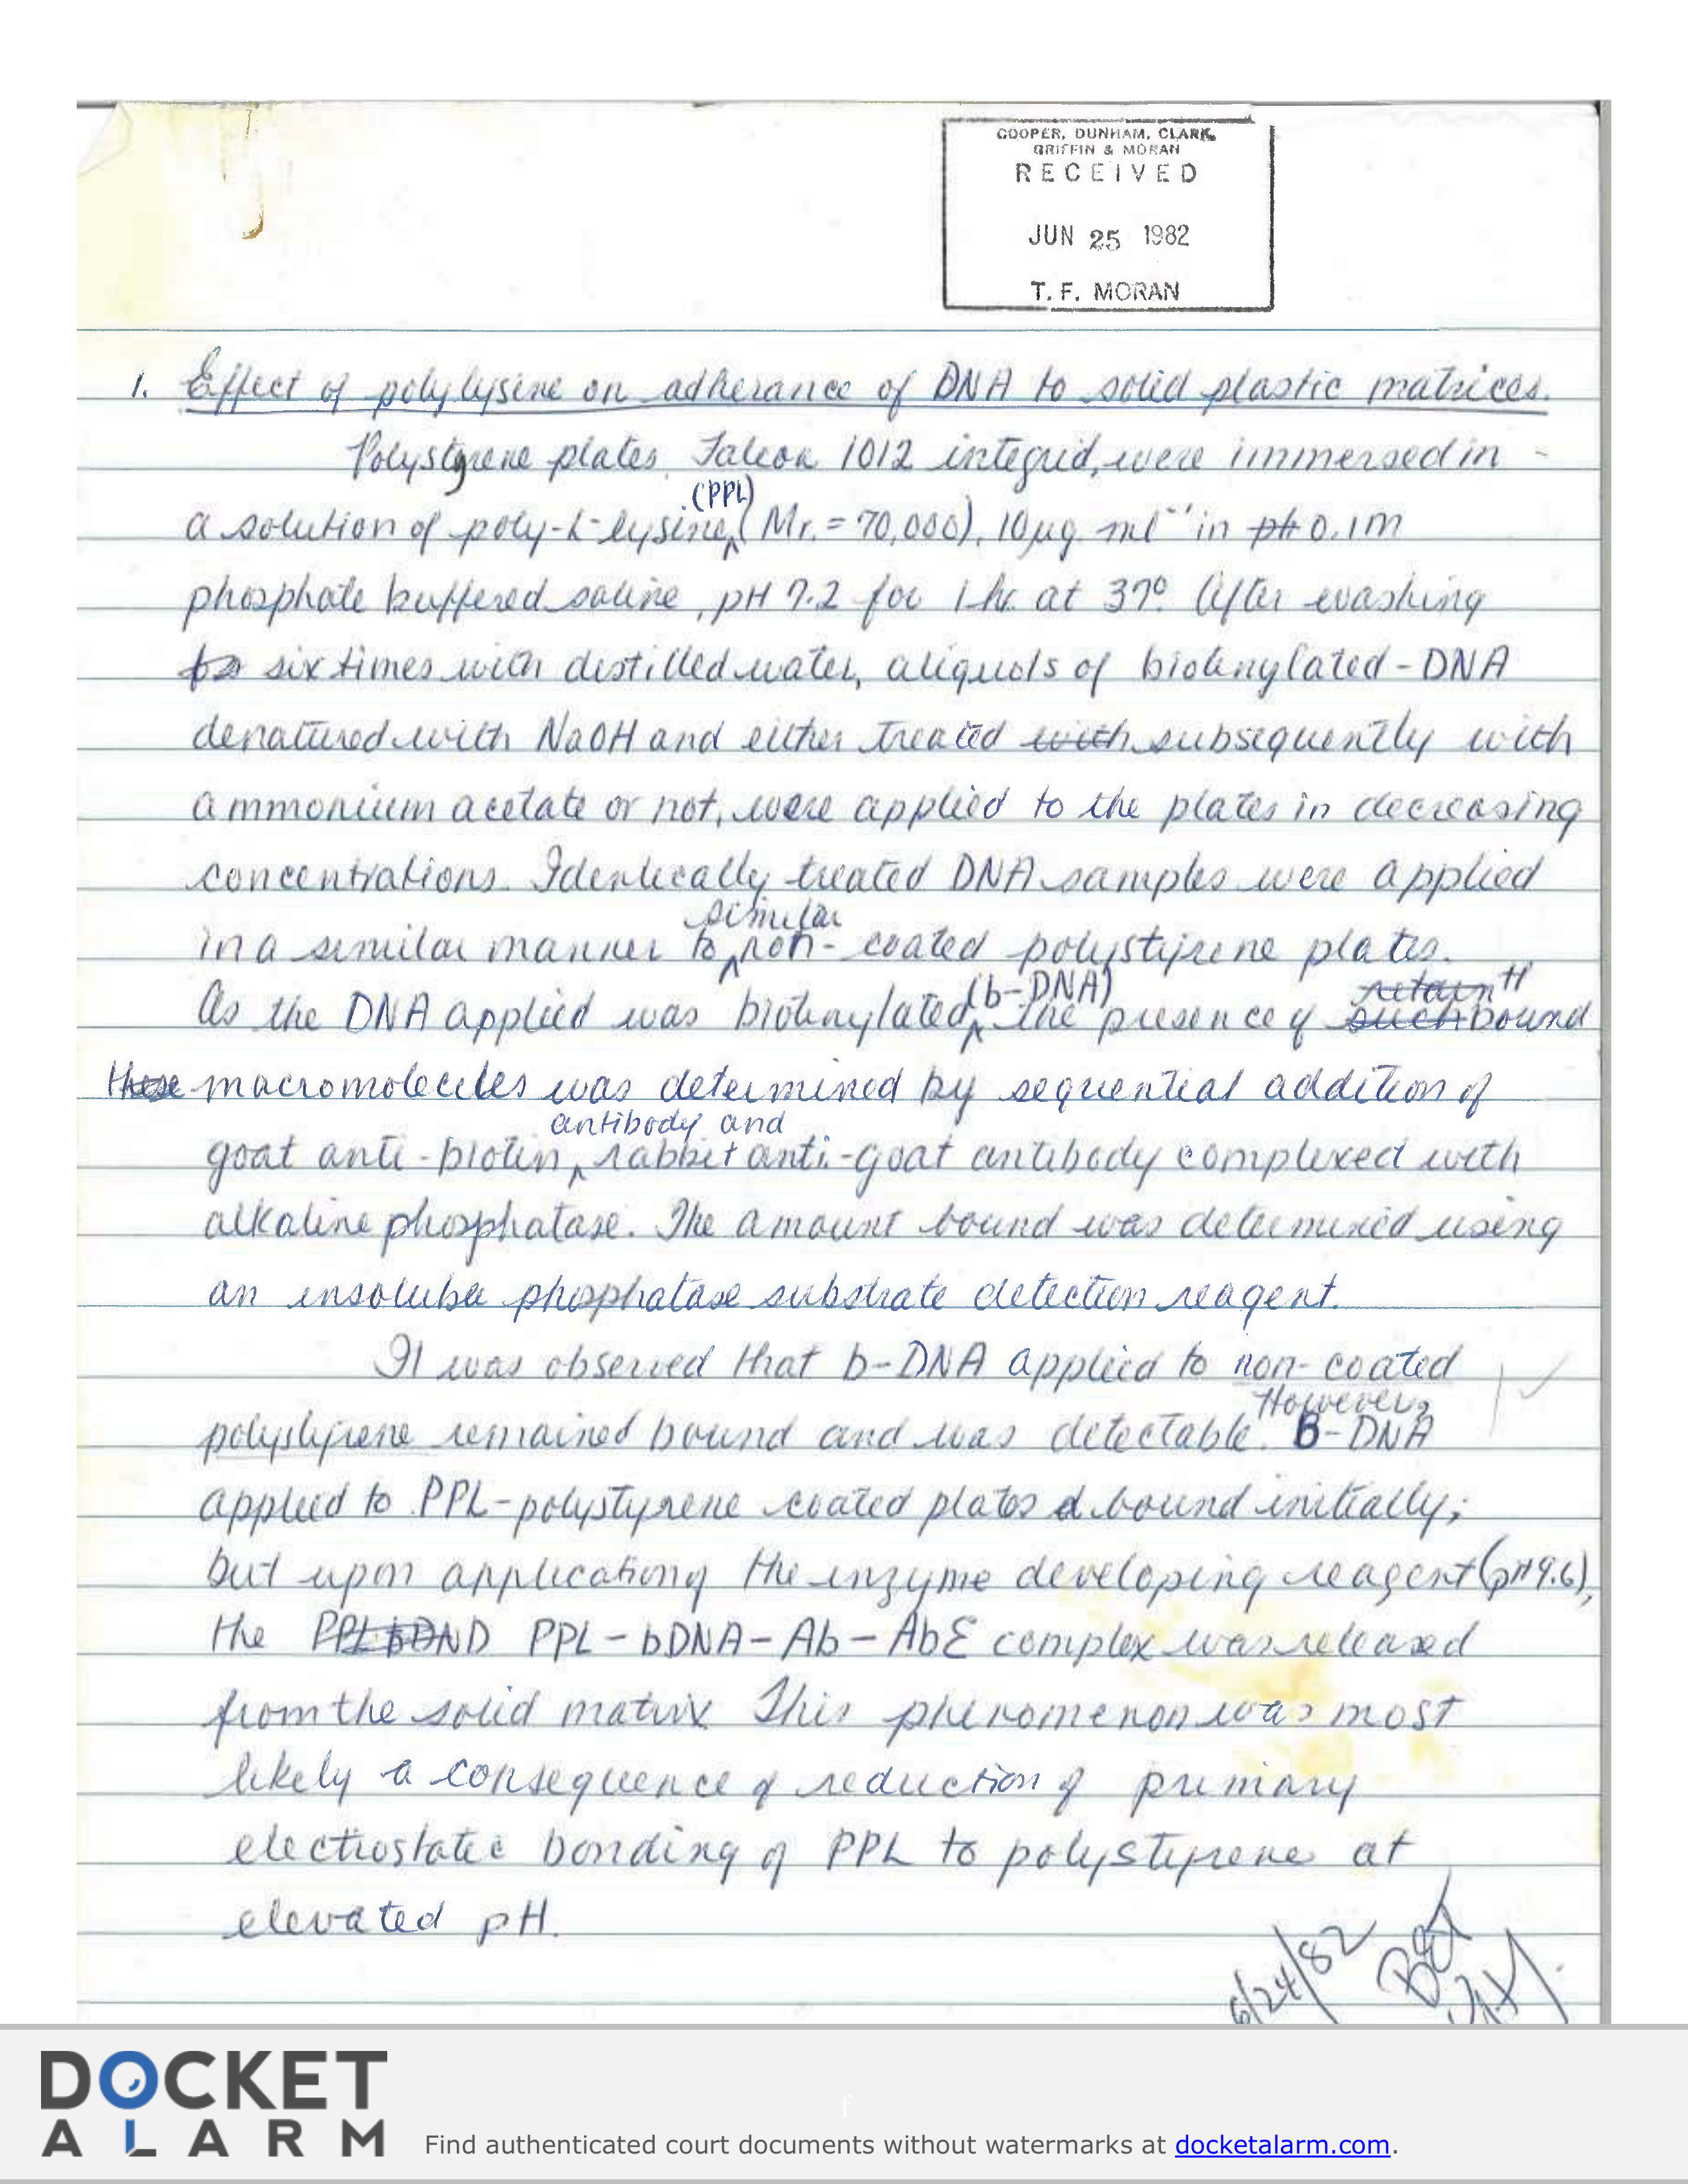 COOPER, DUNHAM, CLARK,
GRIFFIN & MORAN
RECEIVED
JUN 25 1982
T. F. MORAN
1. Effect of polylysine on adherance of DNA to solid plastic matrices.
Polystyrene plates, Falcon 1012 integrid, were immersed in
(PPL)
a solution of poly-L-lysine (Mr. = 70,000), 10 µg ml⁻¹ in pH 0.1M
phosphate buffered saline, pH 7.2 for 1 hr. at 37° After washing
to six times with distilled water, aliquots of biotinylated-DNA
denatured with NaOH and either treated with subsequently with
ammonium acetate or not, were applied to the plates in decreasing
concentrations. Identically treated DNA samples were applied
similar
in a similar manner to non-coated polystyrene plates.
(b-DNA) retain
As the DNA applied was biotinylated, the presence of such bound
these macromolecules was determined by sequential addition of
antibody and
goat anti-biotin rabbit anti-goat antibody complexed with
alkaline phosphatase. The amount bound was determined using
an phosphatase substrate detection reagent.
It was observed that b-DNA applied to non-coated
However,
polystyrene remained bound and was detectable. B-DNA
applied to PPL-polystyrene coated plates d bound initially;
but upon application of the enzyme developing reagent (pH 9.6),
the PPL bDND PPL-bDNA-Ab-AbE complex was released
from the solid matrix This phenomenon was most
likely a consequence of reduction of primary
electrostatic bonding of PPL to polystyrene at
elevated pH.
6/24/82
DOCKET
ALARM
f
Find authenticated court documents without watermarks at docketalarm.com.